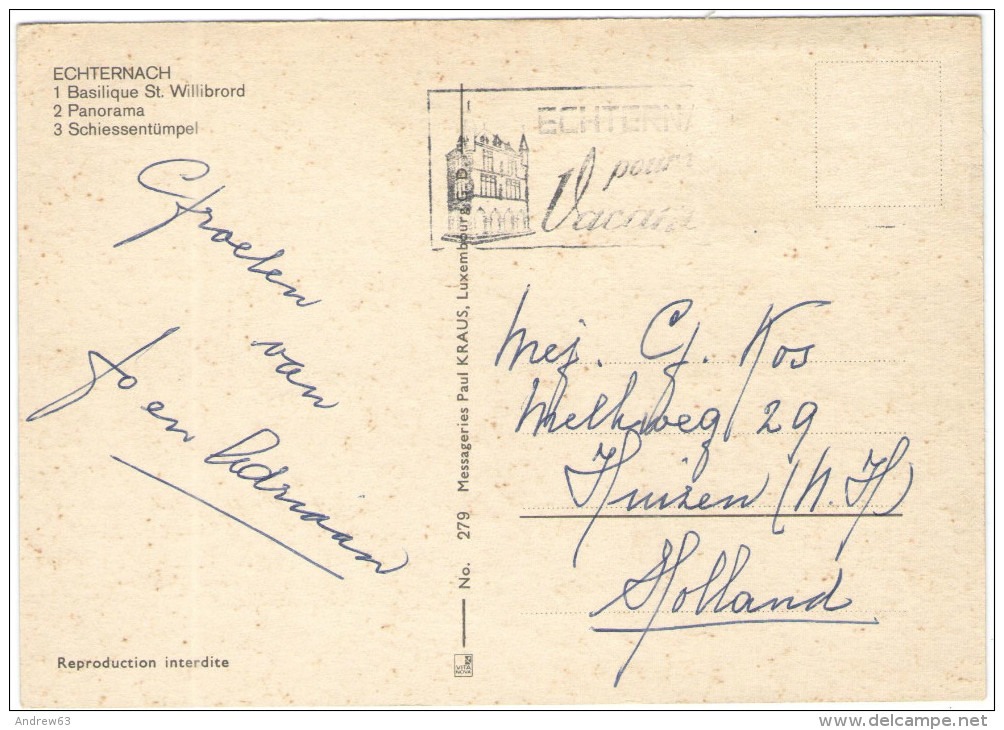 ECHTERNACH
1 Basilique St. Willibrord
2 Panorama
3 Schiessentümpel
ECHTERNA
pour
Vacan
Groeten
van
Jo en Adriaan
Mej. G. Kos
Melkweg 29
Huizen (N.H)
Holland
No. 279 Messageries Paul KRAUS, Luxembourg G. D.
VITA
NOVA
Reproduction interdite
Andrew63
www.delcampe.net